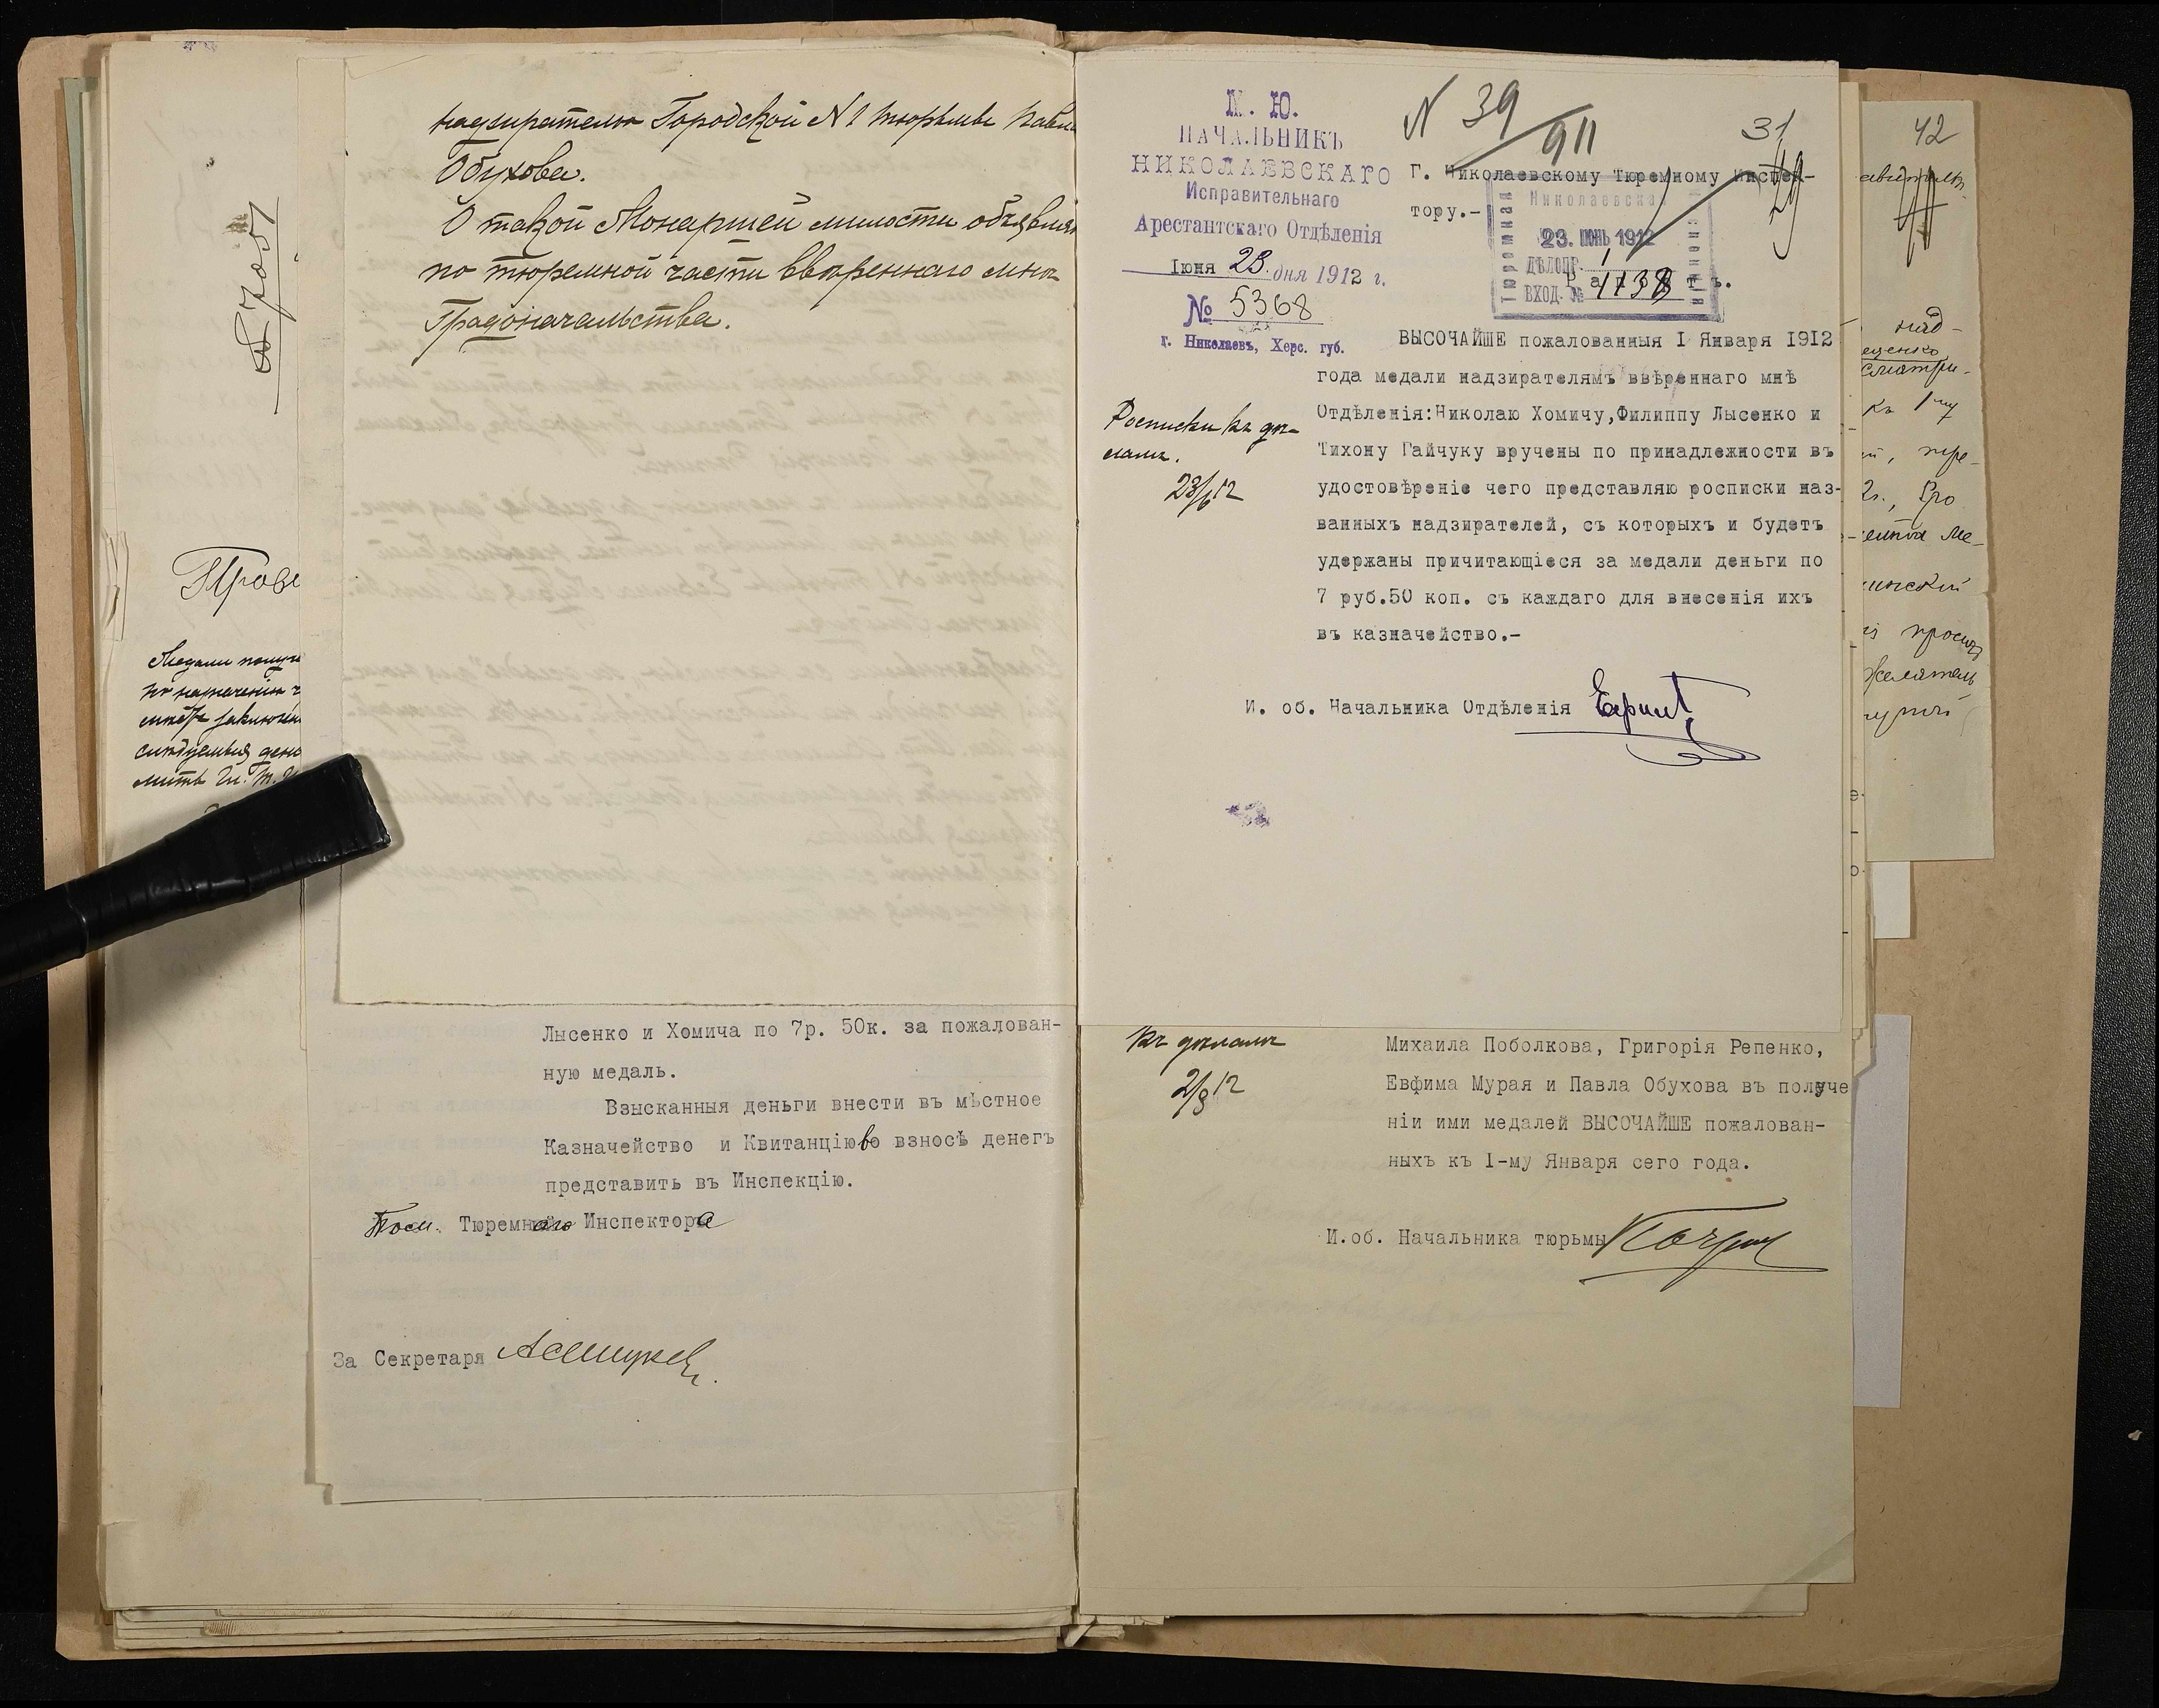 надзирателю Городской №1 тюрьмы Павлу
Обухова.
О такой Монаршей милости объявляю
по тюремной части ввѣреннаго мнѣ
Градоначальства.
Медали получ
по назначенію
Лысенко и Хомича по 7р. 50к. за пожалован-
ную медаль.
Взысканныя деньги внести въ мѣстное
Казначейство и Квитанцію во взносѣ денегъ
представить въ Инспекцію.
Пом. Тюремнаго Инспектора
За Секретаря
М. Ю.
НАЧАЛЬНИКЪ
НИКОЛАЕВСКАГО
Исправительнаго
Арестантскаго Отдѣленія
Іюня 23 дня 1912 г.
№ 5368
г. Николаевъ, Херс. губ.
N 39/911
31
29
Г. Николаевскому Тюремному Инспек-
тору.-
Николаевская
Тюремная
23. ІЮНЬ 1912
ДѢЛОПР. 1
ВХОД. № 1738
Рапортъ.
ВЫСОЧАЙШЕ пожалованныя I Января 1912
года медали надзирателямъ ввѣреннаго мнѣ
Отдѣленія:Николаю Хомичу,Филиппу Лысенко и
Тихону Гайчуку вручены по принадлежности въ
удостовѣреніе чего представляю росписки наз-
ванныхъ надзирателей, съ которыхъ и будетъ
удержаны причитающіеся за медали деньги по
7 руб.50 коп. съ каждаго для внесенія ихъ
въ казначейство.-
Росписки къ дѣ-
ламъ.
23/6 12
И. об. Начальника Отдѣленія
къ дѣламъ
2/8 12
Михаила Поболкова, Григорія Репенко,
Евфима Мурая и Павла Обухова въ получе
ніи ими медалей ВЫСОЧАЙШЕ пожалован-
ныхъ къ I-му Января сего года.
И.об. Начальника тюрьмы
42
над-
къ 1му
пре-
2г.,
ме-